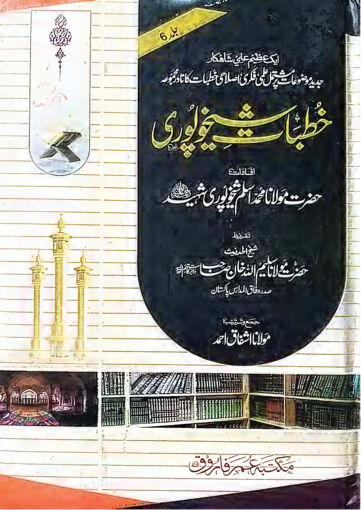 جلد 6
ایک عظیم علمی شاہکار
جدید موضوعات پر مشتمل علمی فکری اصلاحی خطبات کا نادر مجموعہ
خطبات شیخوپوری
افادات
حضرت مولانا محمد اسلم شیخوپوری شہید
تقریظ
شیخ الحدیث
حضرت مولانا سلیم اللہ خان صاحب
صدر وفاق المدارس پاکستان
جمع و ترتیب
مولانا اشفاق احمد
مکتبہ عمر فاروق